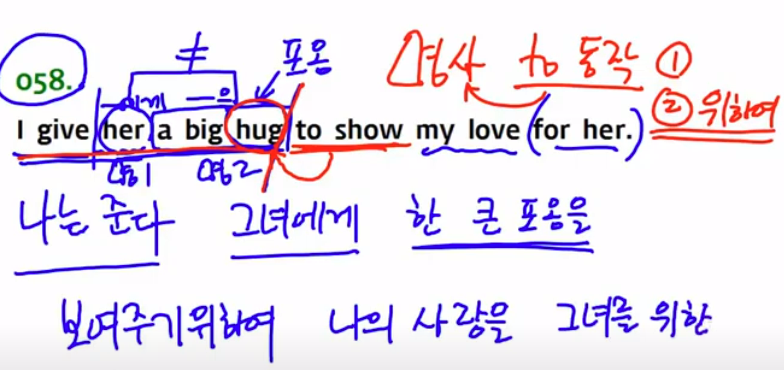 ≠ 포옹 명사 to 동작 ①
058. 에게 ㅡ을 ② 위하여
I give her a big hug to show my love for her.
명1 명2
나는 준다 그녀에게 한 큰 포옹을
보여주기위하여 나의 사랑을 그녀를 위한